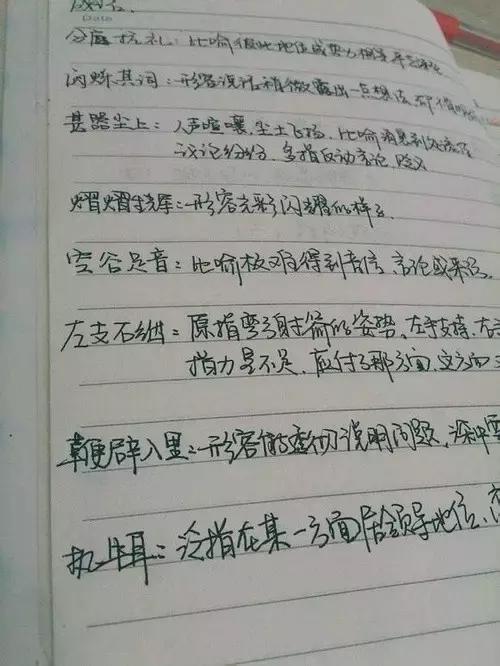 成语。
Date
分庭抗礼：比喻彼此地位或势力相等平起平坐
闪烁其词：形容说话稍微露出一点想法，却不肯
甚嚣尘上：人声喧嚷，尘土飞扬，比喻消息到处流传
议论纷纷，多指反动言论，贬义
熠熠生辉：形容光彩闪耀的样子
空谷足音：比喻极难得到音信、言论或来访。
左支右绌：原指弯弓射箭的姿势，左手支持，右
指力量不足，应付了那方面，这方面
鞭辟入里：形容能透彻说明问题，深中
执牛耳：泛指在某一方面居领导地位，